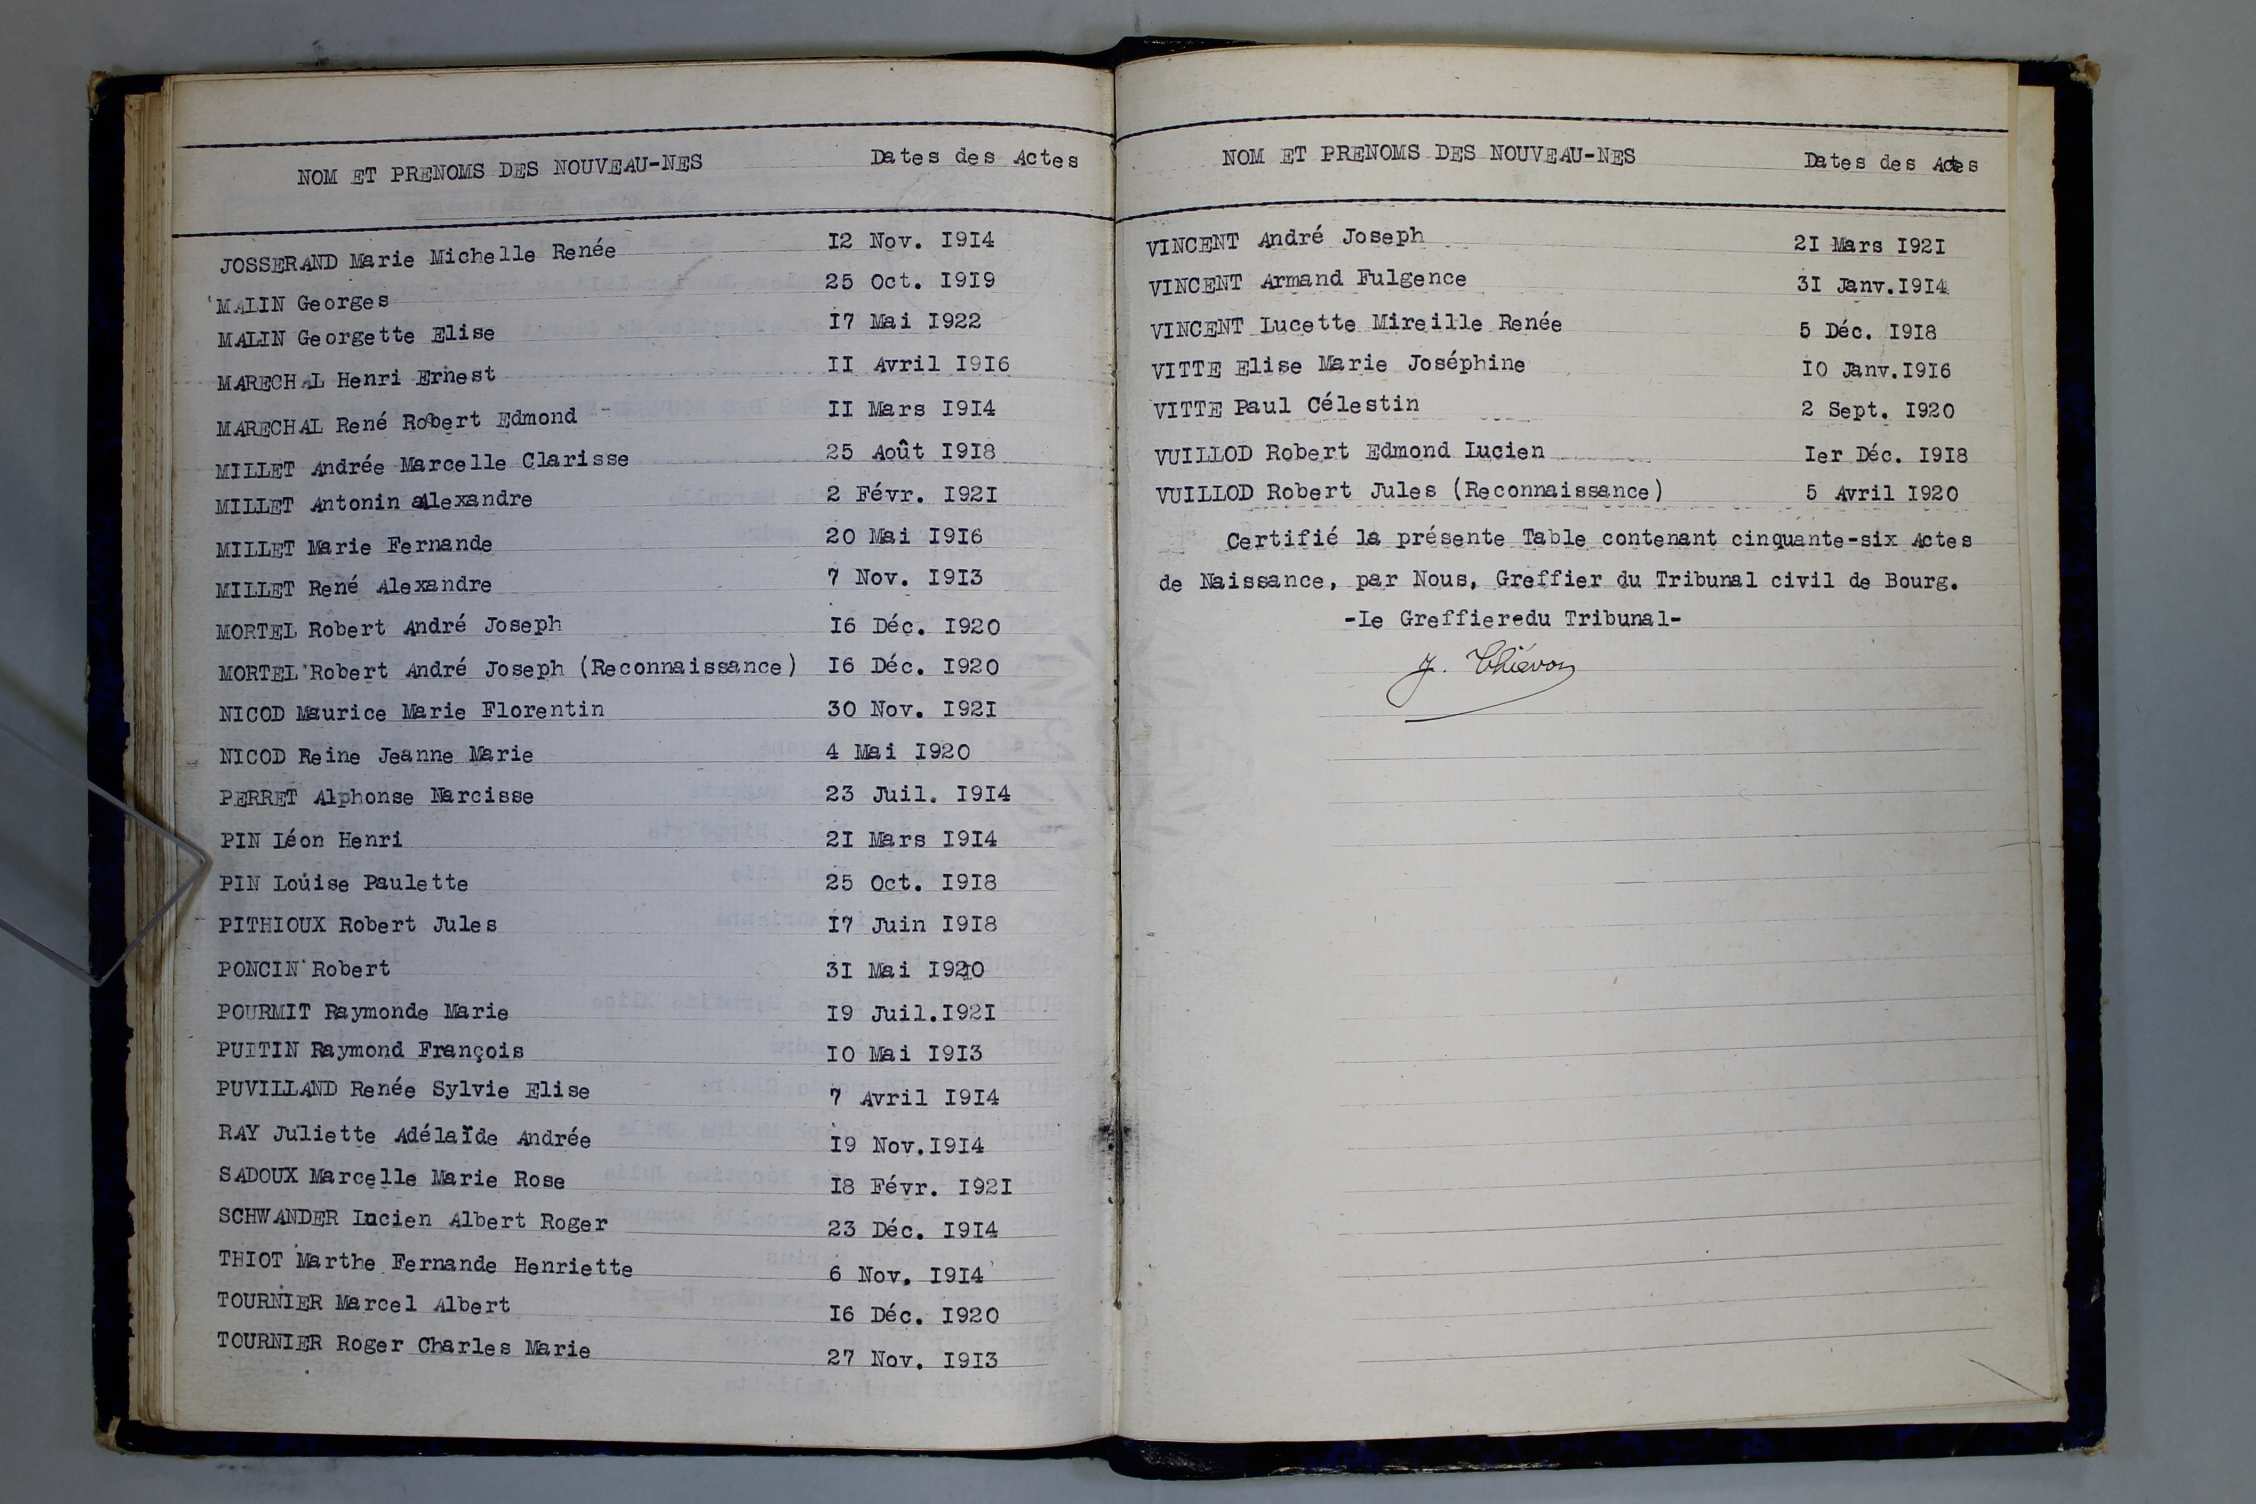 NOM ET PRENOMS DES NOUVEAU-NES Dates des Actes
JOSSERAND Marie Michelle Renée 12 Nov. 1914
MALIN Georges 25 Oct. 1919
MALIN Georgette Elise 17 Mai 1922
MARECHAL Henri Ernest 11 Avril 1916
MARECHAL René Robert Edmond 11 Mars 1914
MILLET Andrée Marcelle Clarisse 25 Août 1918
MILLET Antonin Alexandre 2 Févr. 1921
MILLET Marie Fernande 20 Mai 1916
MILLET René Alexandre 7 Nov. 1913
MORTEL Robert André Joseph 16 Déc. 1920
MORTEL Robert André Joseph (Reconnaissance) 16 Déc. 1920
NICOD Maurice Marie Florentin 30 Nov. 1921
NICOD Reine Jeanne Marie 4 Mai 1920
PERRET Alphonse Narcisse 23 Juil. 1914
PIN Léon Henri 21 Mars 1914
PIN Louise Paulette 25 Oct. 1918
PITHIOUX Robert Jules 17 Juin 1918
PONCIN Robert 31 Mai
POURMIT Raymonde Marie 19 Juil. 1921
PUITIN Raymond François 10 Mai 1913
PUVILLAND Renée Sylvie Elise 7 Avril 1914
RAY Juliette Adélaïde Andrée 19 Nov. 1914
SADOUX Marcelle Marie Rose 18 Févr. 1921
SCHWANDER Lucien Albert Roger 23 Déc. 1914
THIOT Marthe Fernande Henriette 6 Nov. 1914
TOURNIER Marcel Albert 16 Déc. 1920
TOURNIER Roger Charles Marie 27 Nov. 1913
NOM ET PRENOMS DES NOUVEAU-NES Dates des Actes
VINCENT André Joseph 21 Mars 1921
VINCENT Armand Fulgence 31 Janv. 1914
VINCENT Lucette Mireille Renée 5 Déc. 1918
VITTE Elise Marie Joséphine 10 Janv. 1916
VITTE Paul Célestin 2 Sept. 1920
VUILLOD Robert Edmond Lucien 1er Déc. 1918
VUILLOD Robert Jules (Reconnaissance) 5 Avril 1920
Certifié la présente Table contenant cinquante-six Actes
de Naissance, par Nous, Greffier du Tribunal civil de Bourg.
-Le Greffieredu Tribunal-
J. Thiévon